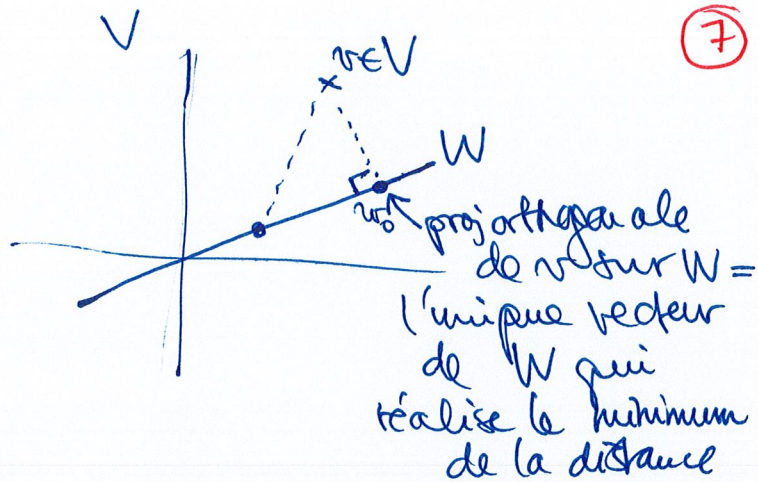 V
7
v∈V
W
w₀
proj orthogonale
de v sur W =
l'unique vecteur
de W qui
réalise le minimum
de la distance